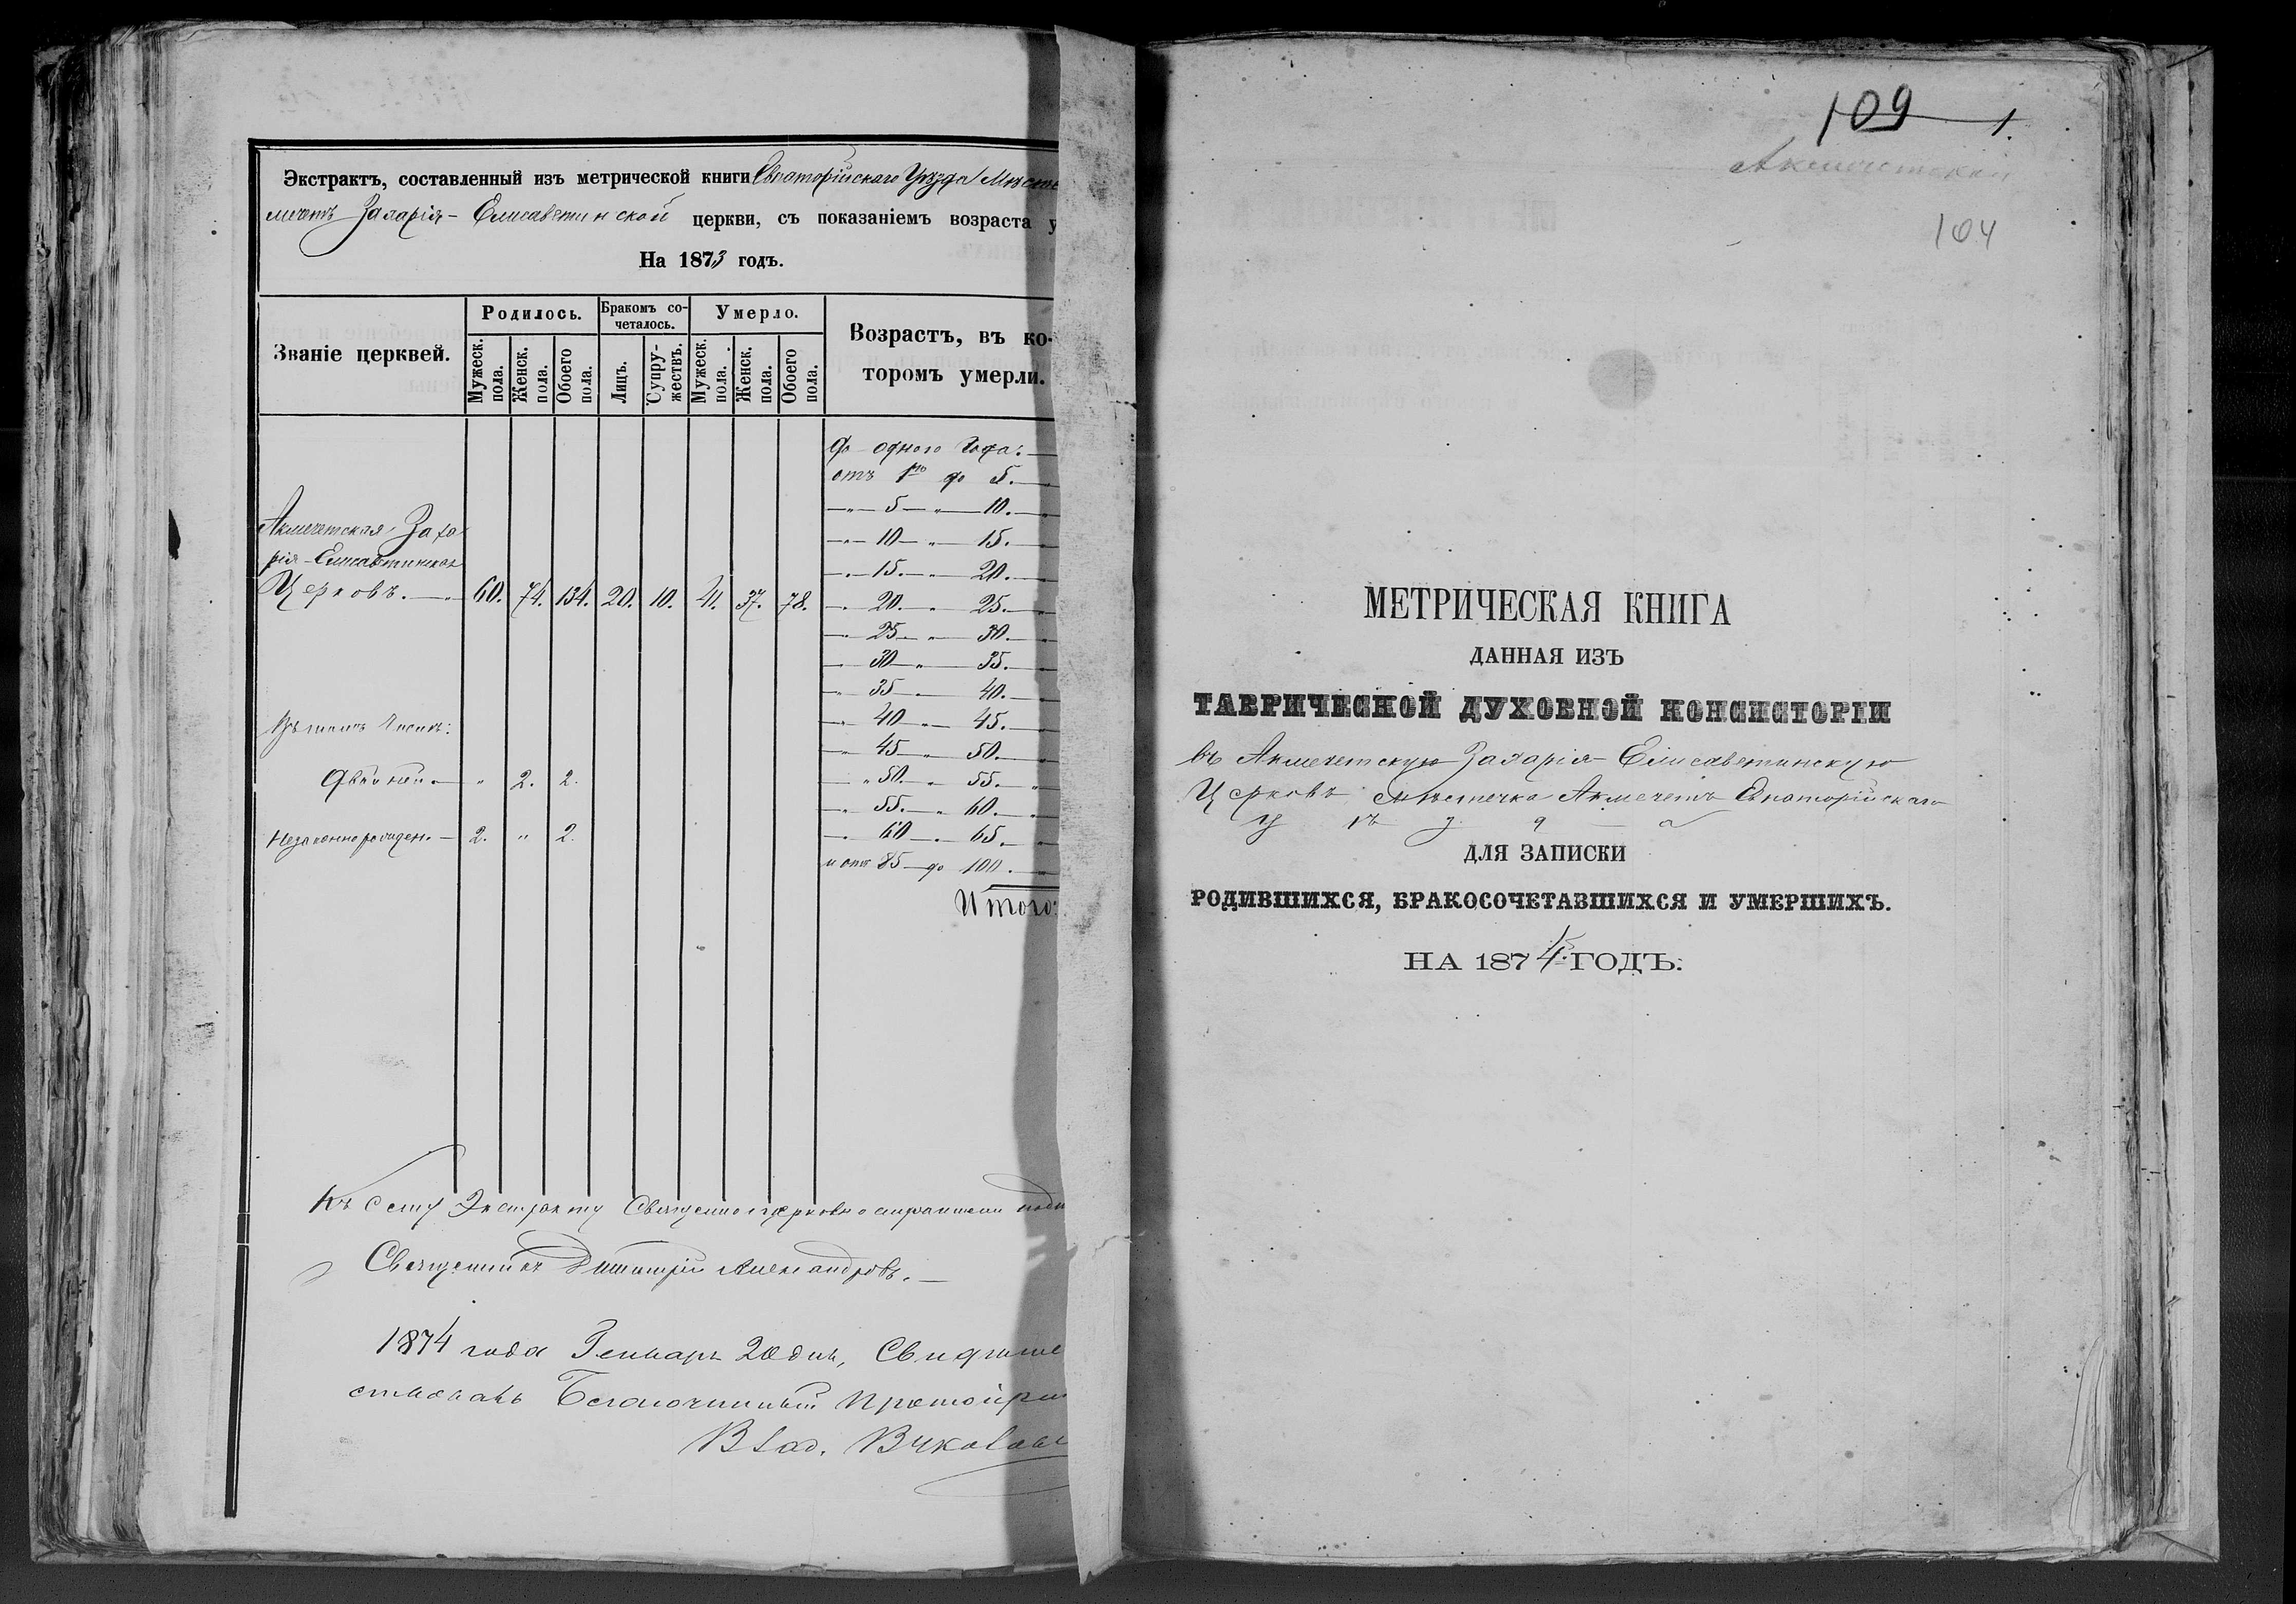 Экстрактъ, составленный изъ метрической книги Евпаторійскаго Уѣзда
мечетъ Захарія-Елисаветинской церкви, съ показаніемъ возраста
На 1873 годъ.
Званіе церквей.
Родилось.
Бракомъ со-
четалось.
Умерло.
Возрастъ, въ ко-
торомъ умерли.
Мужеск. пола.
Женск. пола.
Обоего пола.
Лицъ.
Супру-
жествъ.
Мужеск. пола.
Женск. пола.
Обоего пола.
До одного года:
отъ 1го до 5.
" 5 " 10.
Акмечетская Заха
" 10 " 15.
рія-Елисаветинская
" 15. " 20.
Церковь. 60. 74. 134. 20. 10. 41. 37. 78. " 20. " 25.
" 25 " 30.
" 30 " 35.
" 35 " 40.
" 40 " 45.
" 45 " 50.
Двойни " 2. 2. " 50. " 55.
" 55. " 60.
Незаконнорожден. 2. " 2. " 60 " 65.
и отъ 85 до 100.
Итого:
Къ сему Экстракту Священноцерковнослужители
Священникъ Димитрій Александровъ.
1874 года Генваря 20 дня, Свидѣте
ствовалъ Благочинный Протоіере
Влад.
109 1.
Акмечетской
104
МЕТРИЧЕСКАЯ КНИГА
ДАННАЯ ИЗЪ
ТАВРИЧЕСКОЙ ДУХОВНОЙ КОНСИСТОРІИ
въ Акмечетскую Захарія-Елисаветинскую
Церковь мѣстечка Акмечетъ Евпаторійскаго
Уѣзда
ДЛЯ ЗАПИСКИ
РОДИВШИХСЯ, БРАКОСОЧЕТАВШИХСЯ И УМЕРШИХЪ.
НА 1874 ГОДЪ.